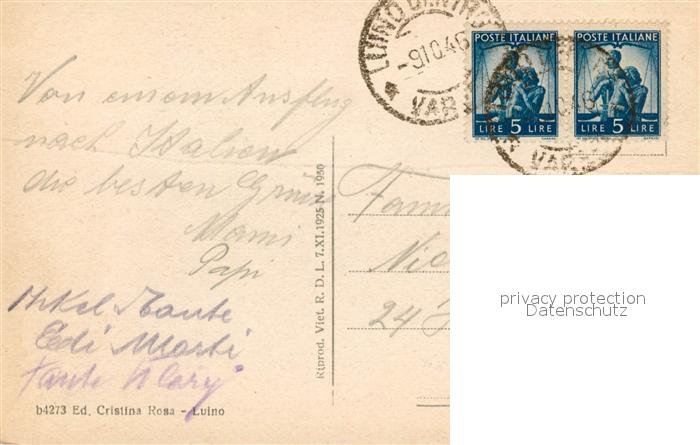 LUINO
-9.10.46
VAR
POSTE ITALIANE POSTE ITALIANE
LIRE 5 LIRE LIRE 5 LIRE
VAR
Von einem Ausflug
nach Italien
die besten Grüsse
Mami
Papi
Onkel Tante
Edi
Tante
Riprod. Viet. R. D. L. 7.XI.1925 N. 1950
24
privacy protection
Datenschutz
b4273 Ed. Cristina Rosa - Luino